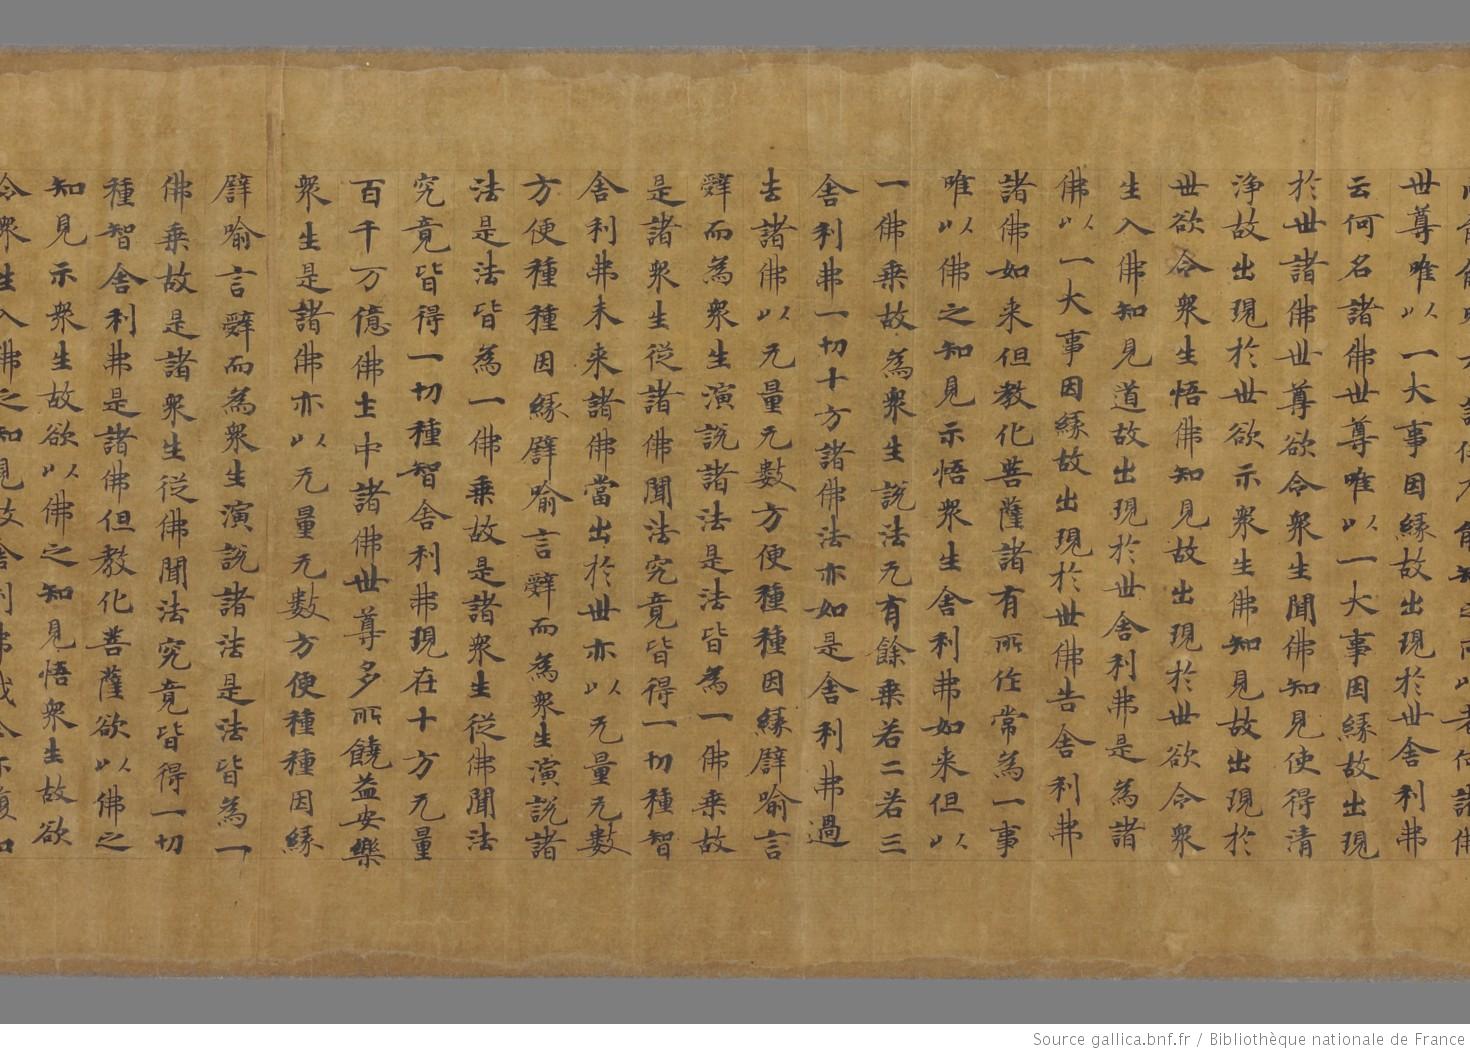 世尊唯以一大事因緣故出現於世舍利弗
云何名諸佛世尊唯以一大事因緣故出現
於世諸佛世尊欲令衆生聞佛知見使得清
淨故出現於世欲示衆生佛知見故出現於
世欲令衆生悟佛知見故出現於世欲令衆
生入佛知見道故出現於世舍利弗是為諸
佛以一大事因緣故出現於世佛告舍利弗
諸佛如来但教化菩薩諸有所作常為一事
唯以佛之知見示悟衆生舍利弗如来但以
一佛乗故為衆生說法无有餘乗若二若三
舍利弗一切十方諸佛法亦如是舍利弗過
去諸佛以无量无數方便種種因緣譬喻言
辭而為衆生演說諸法是法皆為一佛乗故
是諸衆生從諸佛聞法究竟皆得一切種智
舍利弗未来諸佛當出於世亦以无量无數
方便種種因緣譬喻言辭而為衆生演說諸
法是法皆為一佛乗故是諸衆生從佛聞法
究竟皆得一切種智舍利弗現在十方无量
百千万億佛土中諸佛世尊多所饒益安樂
衆生是諸佛亦以无量无數方便種種因緣
譬喻言辭而為衆生演說諸法是法皆為一
佛乗故是諸衆生從佛聞法究竟皆得一切
種智舍利弗是諸佛但教化菩薩欲以佛之
知見示衆生故欲以佛之知見悟衆生故欲
令衆生入佛之知見故舍利弗我今亦復如
Source gallica.bnf.fr / Bibliothèque nationale de France